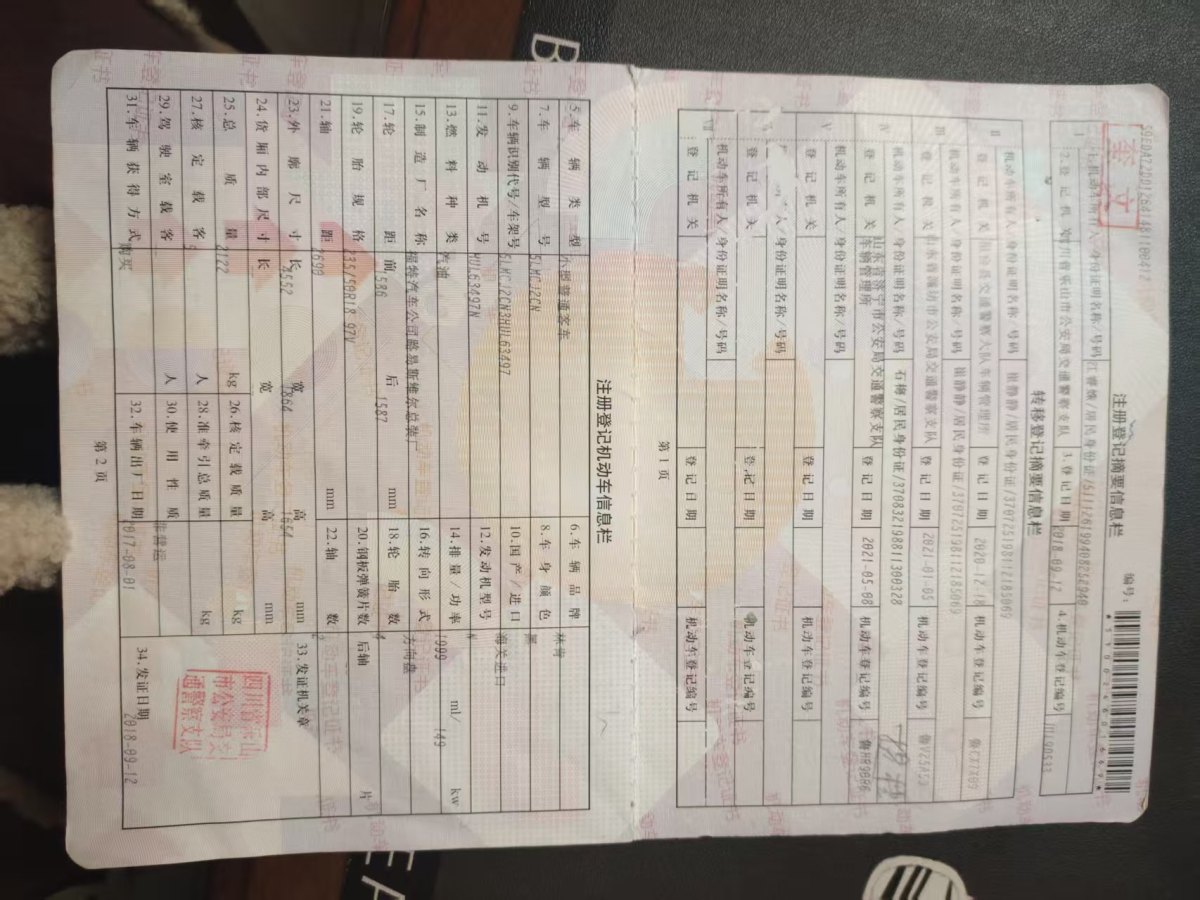 注册登记摘要信息栏
编号:
*510024601669*
1.机动车所有人/身份证明名称/号码
2.登记机关 四川省乐山市公安局交通警察支队 3.登记日期 2018-09-12 4.机动车登记编号
转移登记摘要信息栏
II 机动车所有人/身份证明名称/号码 崔静静/居民身份证/370725198112185069
登记机关 登记日期 2020-12-18 机动车登记编号
III 机动车所有人/身份证明名称/号码 崔静静/居民身份证/370725198112185069
登记机关 山东省潍坊市公安局交通警察支队 登记日期 2021-01-05 机动车登记编号
IV 机动车所有人/身份证明名称/号码 石 /居民身份证/370832198811300328
登记机关 山东省济宁市公安局交通警察支队车辆管理所 登记日期 2021-05-08 机动车登记编号 鲁H89Q86
V 机动车所有人/身份证明名称/号码
登记机关 登记日期 机动车登记编号
人/身份证明名称/号码
登记机关 登记日期 机动车登记编号
VII 机动车所有人/身份证明名称/号码
登记机关 登记日期 机动车登记编号
第1页
注册登记机动车信息栏
5.车辆类型 小型普通客车 6.车辆品牌 林肯
7.车辆型号 5LMCJ2CN 8.车身颜色 黑
9.车辆识别代号/车架号 5LMCJ2CN3HUL63497 10.国产/进口 海关进口
11.发动机号 HUL63497N 12.发动机型号 N
13.燃料种类 汽油 14.排量/功率 1999 ml/ 149 kw
15.制造厂名称 福特汽车公司路易斯维尔总装厂 16.转向形式 方向盘
17.轮距 前 1586 后 1587 mm 18.轮胎数 4
19.轮胎规格 235/50R18 97V 20.钢板弹簧片数 后轴 片
21.轴距 2690 mm 22.轴数 2
23.外廓尺寸 长 4552 宽 1864 高 1654 mm
24.货厢内部尺寸 长 宽 高 mm
33.发证机关章
25.总质量 2122 kg 26.核定载质量 kg
27.核定载客 5 人 28.准牵引总质量 kg
四川省乐山
市公安局交
通警察支队
29.驾驶室载客 人 30.使用性质 非营运
31.车辆获得方式 购买 32.车辆出厂日期 2017-08-01
34.发证日期 2018-09-12
第2页